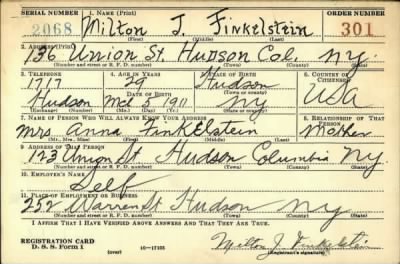 SERIAL NUMBER 1. NAME (Print) ORDER NUMBER
2068 Milton J. Finkelstein 301
(First) (Middle) (Last)
2. ADDRESS (Print)
136 Union St. Hudson Col. N.Y.
(Number and street or R. F. D. number) (Town) (County) (State)
3. TELEPHONE 4. AGE IN YEARS 5. PLACE OF BIRTH 6. COUNTRY OF CITIZENSHIP
1717 29 Hudson
DATE OF BIRTH (Town or county)
Hudson Oct 3 1911 NY USA
(Exchange) (Number) (Mo.) (Day) (Yr.) (State or country)
7. NAME OF PERSON WHO WILL ALWAYS KNOW YOUR ADDRESS 8. RELATIONSHIP OF THAT PERSON
Mrs. Anna Finkelstein Mother
(Mr., Mrs., Miss) (First) (Middle) (Last)
9. ADDRESS OF THAT PERSON
123 Union St. Hudson Columbia NY
(Number and street or R. F. D. number) (Town) (County) (State)
10. EMPLOYER'S NAME
Self
11. PLACE OF EMPLOYMENT OR BUSINESS
252 Warren St Hudson NY
(Number and street or R. F. D. number) (Town) (County) (State)
I AFFIRM THAT I HAVE VERIFIED ABOVE ANSWERS AND THAT THEY ARE TRUE.
REGISTRATION CARD
D. S. S. Form 1 (over) 16—17105 Milton J. Finkelstein
(Registrant's signature)